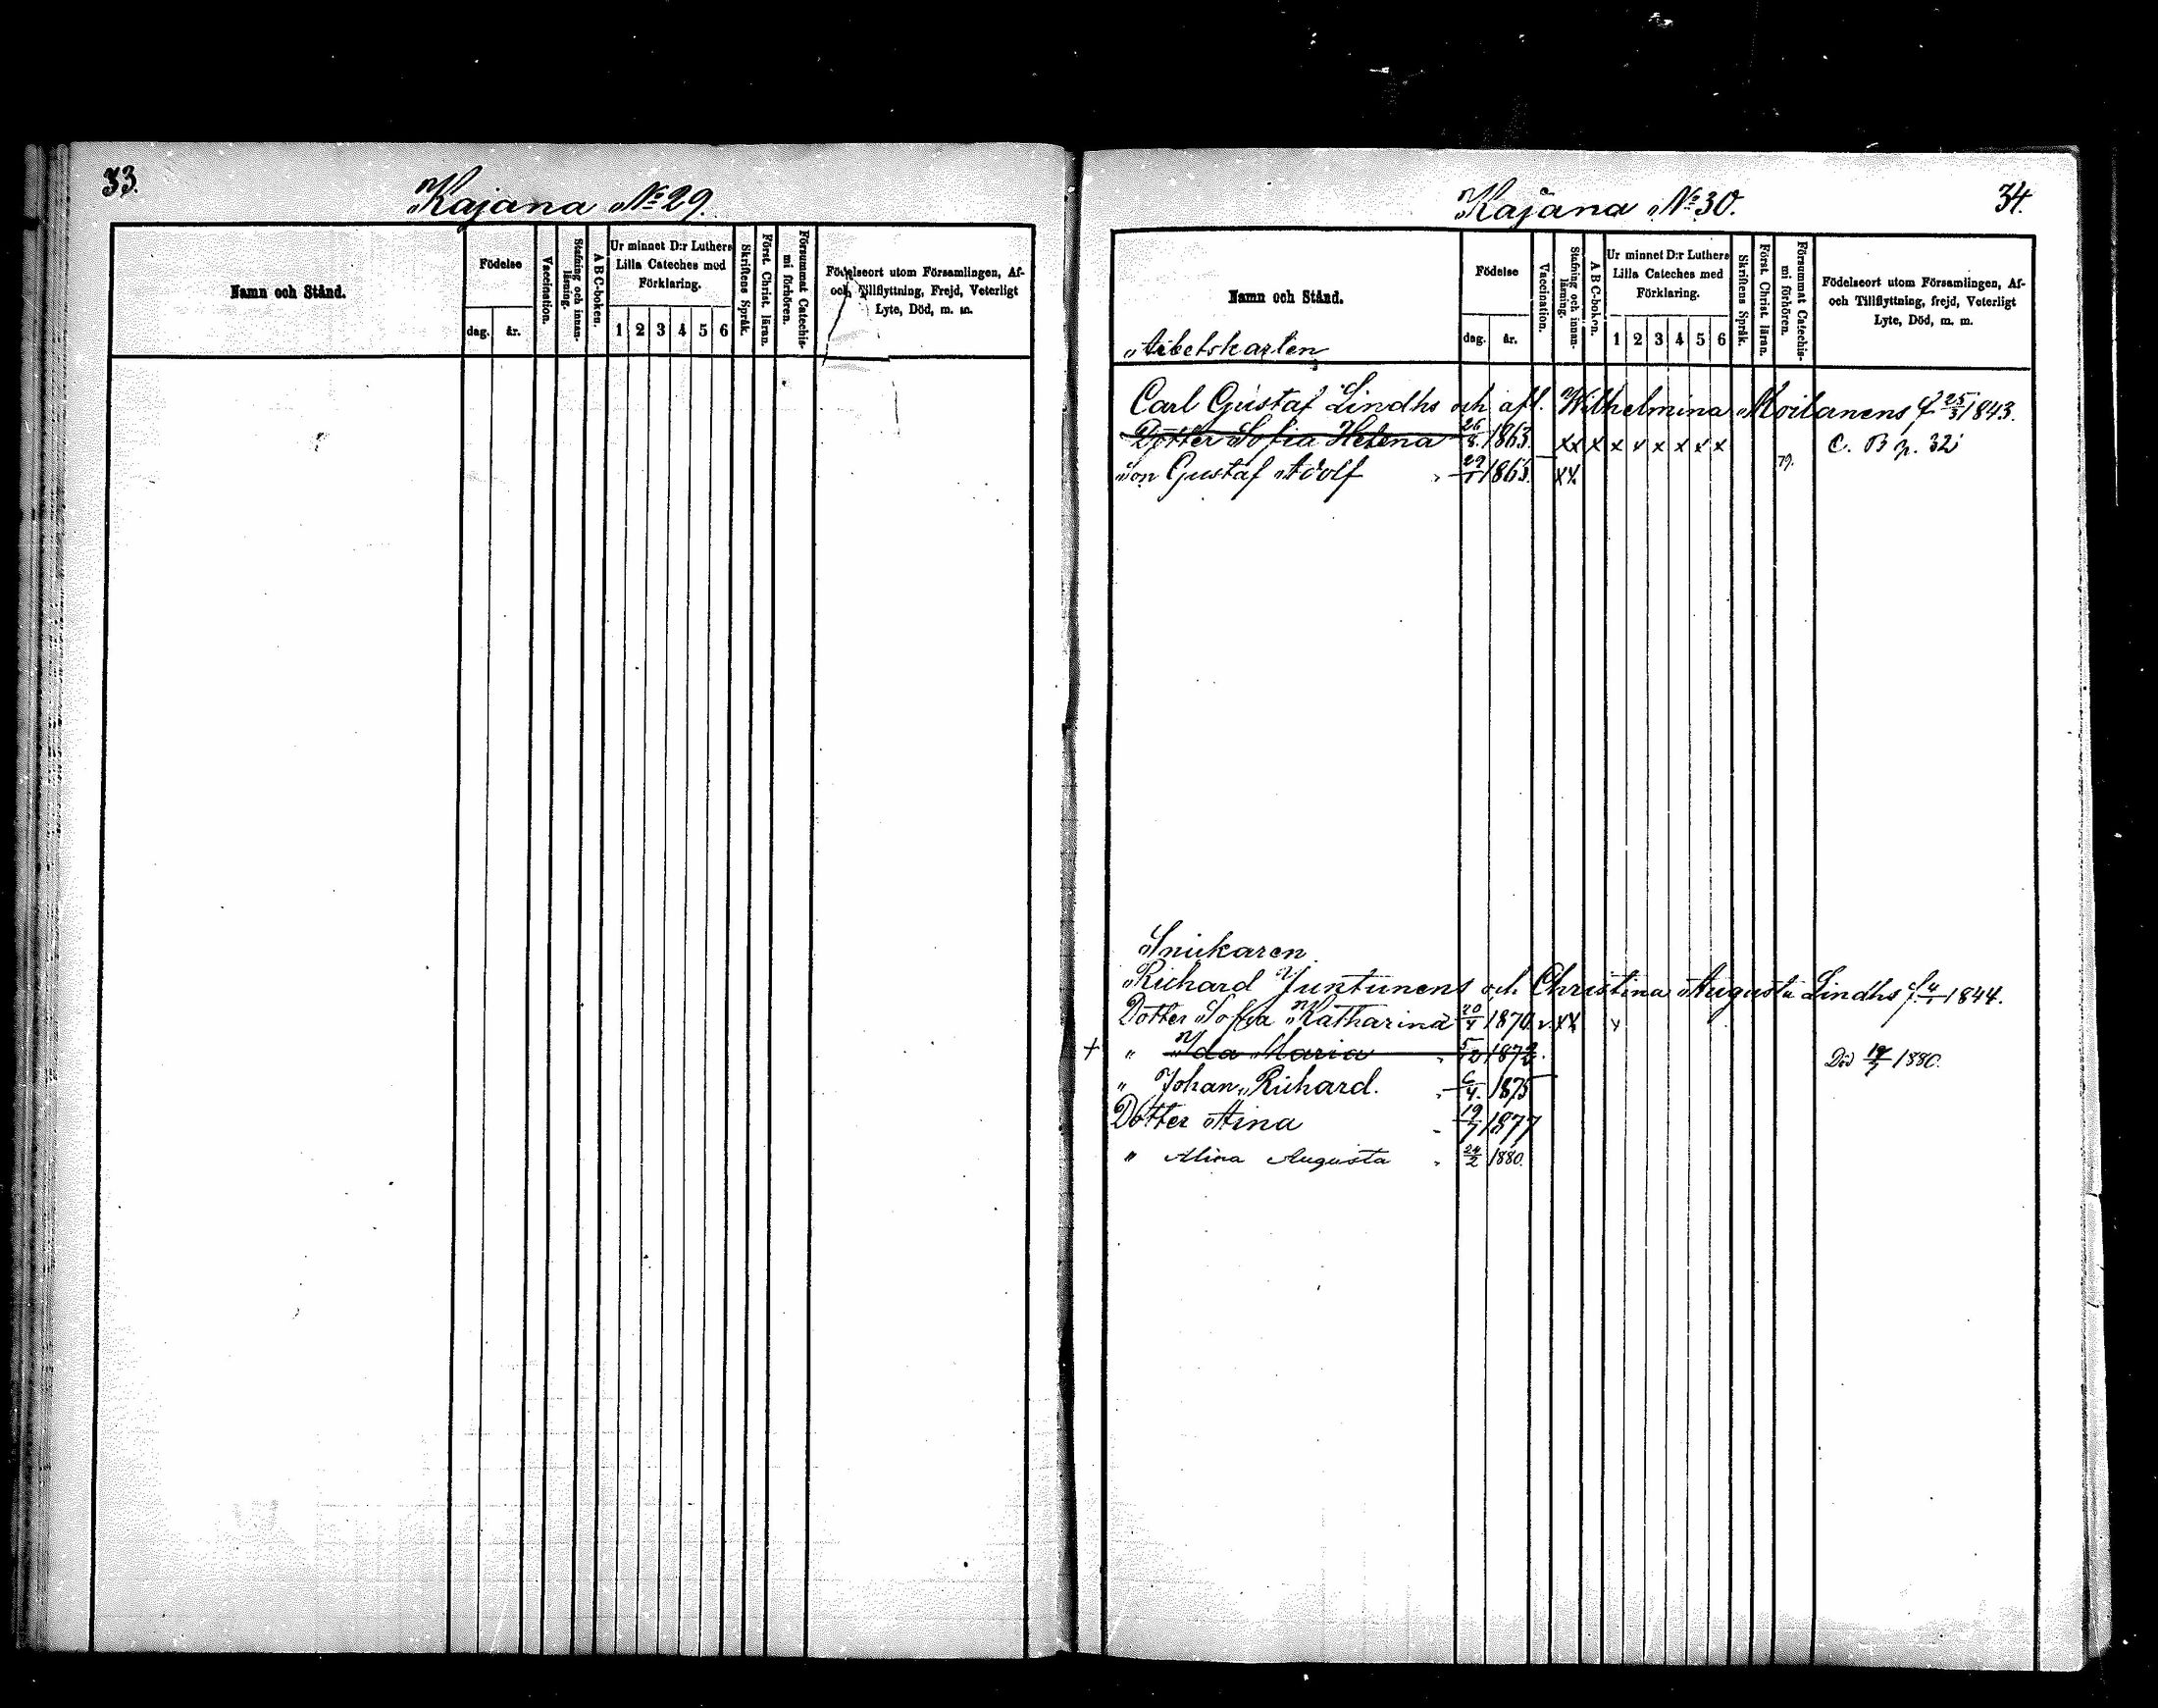 33.
Kajana № 29.
Namn och Stånd.
Födelse
dag. år.
Vaccination.
Stafning och innan-läsning.
A B C-boken.
Ur minnet D:r Luthers
Lilla Cateches med
Förklaring.
1 2 3 4 5 6
Skriftens Språk.
Först. Christ. läran.
Försummat Catechis-
mi förhören.
Födelseort utom Församlingen, Af-
och Tillflyttning, Frejd, Veterligt
Lyte, Död, m. m.
34.
Kajana № 30.
Namn och Stånd.
Födelse
dag. år.
Vaccination.
Stafning och innan-läsning.
A B C-boken.
Ur minnet D:r Luthers
Lilla Cateches med
Förklaring.
1 2 3 4 5 6
Skriftens Språk.
Först. Christ. läran.
Försummat Catechis-
mi förhören.
Födelseort utom Församlingen, Af-
och Tillflyttning, frejd, Veterligt
Lyte, Död, m. m.
Arbetskarlen
Carl Gustaf Lindhs och afl. Wilhelmina Moilanens f. 25/3 1843.
Dotter Sofia Helena 26/8 1863. xx x x x x x x x C. B p. 32
Son Gustaf Adolf " 29/1 1865. xx 79.
Snickaren
Richard Juntunens och Christina Augusta Lindhs f. 4/1 1844.
Dotter Sofia Katharina 20/4 1870 v. xx x
+ " Ida Maria " 5/12 1872. Död 1880.
" Johan Richard. " 6/4. 1875
Dotter Aina " 19/7 1877
" Alina Augusta " 24/2 1880.